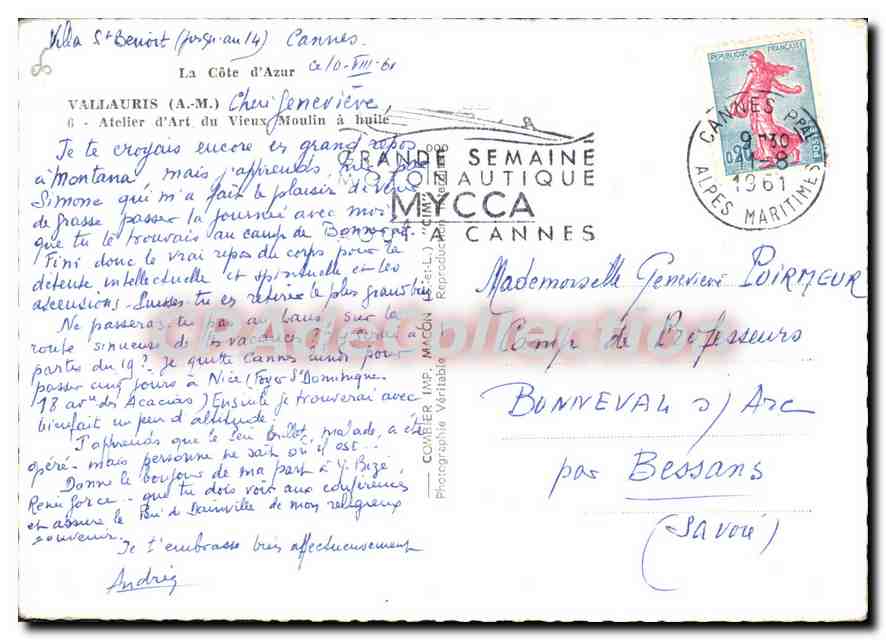 Villa St Benoit (jusqu'au 14) Cannes.
ce 10-VIII-61
La Côte d'Azur
VALLAURIS (A.-M.)
6 - Atelier d'Art du Vieux Moulin à huile
Chère Geneviève,
Je te croyais encore en grand repos
à Montana, mais j'apprends par
Simone qui m'a fait le plaisir de venir
de Grasse passer la journée avec moi
que tu te trouvais au camp de Bonneval.
Fini donc le vrai repos du corps pour la
détente intellectuelle et spirituelle et les
ascensions. tu en retires le plus grand bien
Ne passeras-tu pas au sur la
route sinueuse de tes vacances à
partir du 19? Je quitte Cannes lundi pour
passer cinq jours à Nice (Foyer St Dominique
18 avue des Acacias) Ensuite je trouverai avec
bienfait un peu d'altitude.
J'apprends que le Père malade, a été
opéré - mais personne ne sait où il est...
Donne le bonjour de ma part à Y. Bizé,
Renée Gorce - que tu dois voir aux conférences
et assure le Père de Dainville de mon religieux
souvenir.
Je t'embrasse très affectueusement
Andrée
GRANDE SEMAINE
MOTONAUTIQUE
MYCCA
A CANNES
COMBIER IMP. MACON (S.-et-L.) "CIM"
Photographie Véritable Reproduction
REPUBLIQUE FRANÇAISE
0,20
CANNES PPAL
9H30
11-8
1961
ALPES MARITIMES
Mademoiselle Geneviève POIRMEUR
Camp de Professeurs
BONNEVAL s/ ARC
par Bessans
(Savoie)
CPADeCollection